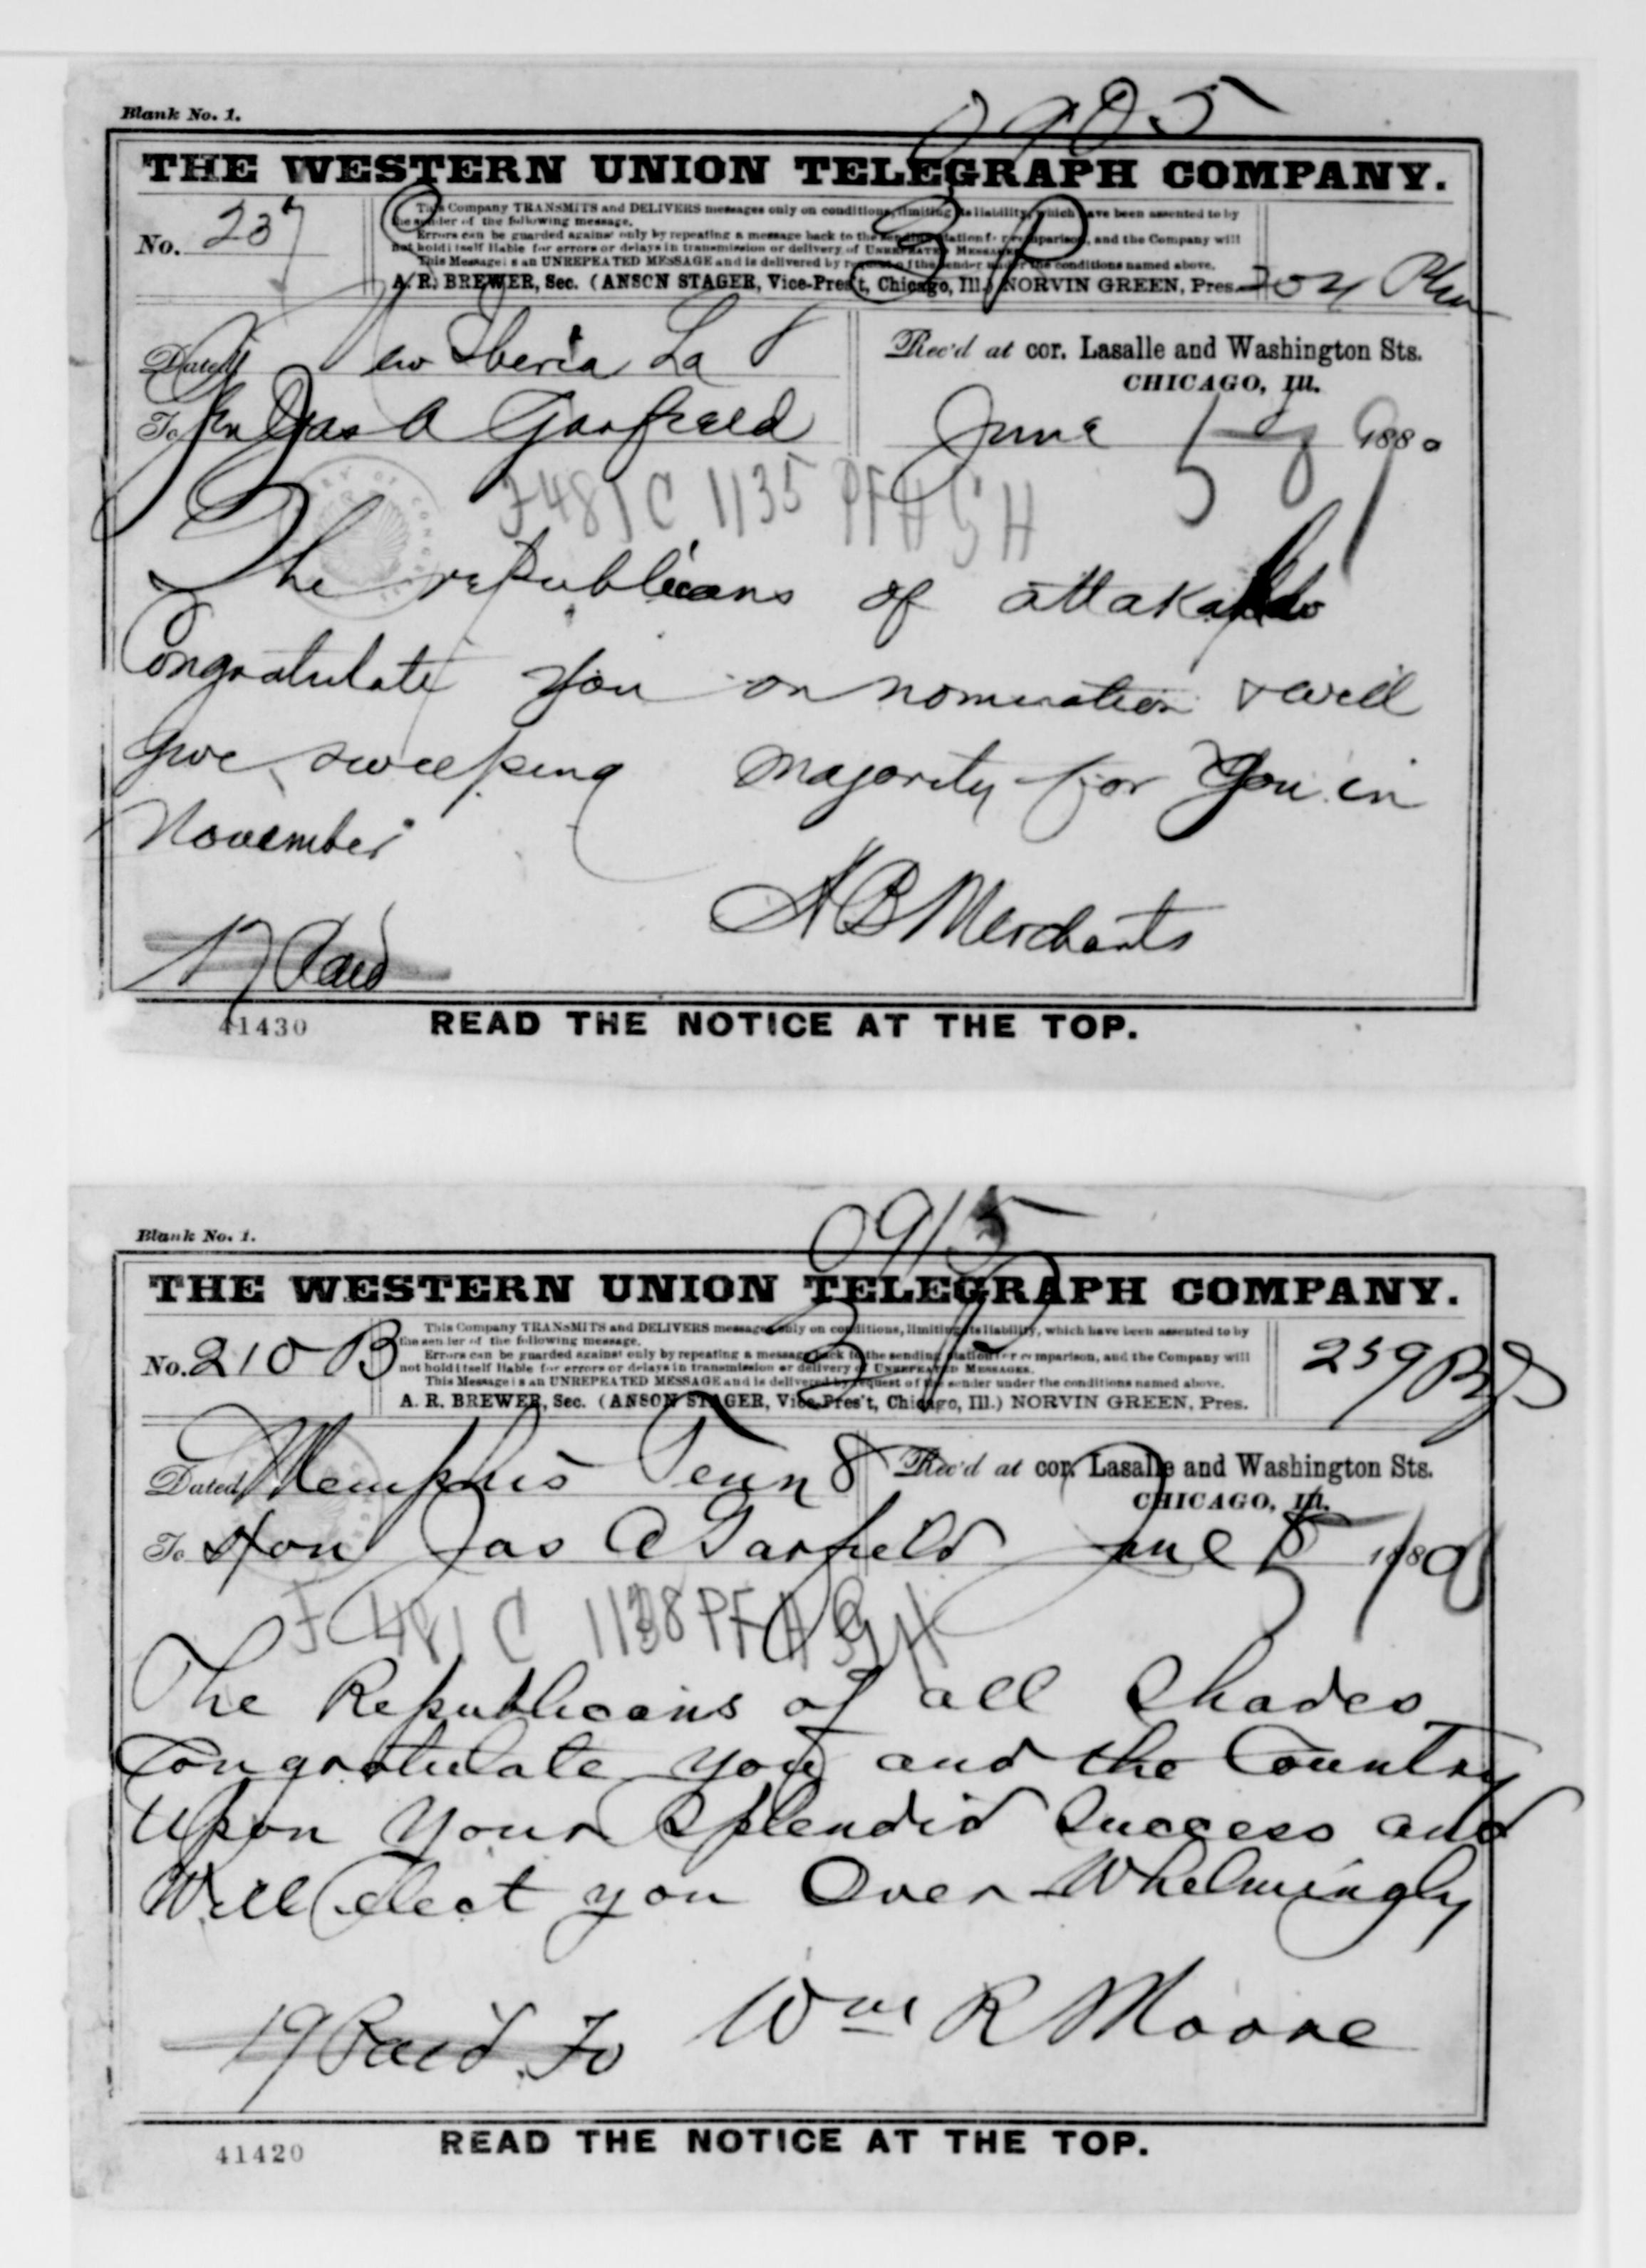 Blank No. 1.
THE WESTERN UNION TELEGRAPH COMPANY.
No. 237
This Company TRANSMITS and DELIVERS messages only on conditions, limiting its liability, which have been assented to by
the sender of the following message.
Errors can be guarded against only by repeating a message back to the sending station for comparison, and the Company will
not hold itself liable for errors or delays in transmission or delivery of UNREPEATED MESSAGES.
This Message is an UNREPEATED MESSAGE and is delivered by request of the sender under the conditions named above.
A. R. BREWER, Sec. (ANSON STAGER, Vice-Pres't, Chicago, Ill.) NORVIN GREEN, Pres.
Dated New Iberia La 8
Rec'd at cor. Lasalle and Washington Sts.
CHICAGO, Ill.
To Jas A Garfield
June 1880
The republicans of attakapas
Congratulate you on nomination & will
give sweeping majority for you in
November
A B Merchants
17 Paid
41430
READ THE NOTICE AT THE TOP.
0915
Blank No. 1.
THE WESTERN UNION TELEGRAPH COMPANY.
No. 210 B
This Company TRANSMITS and DELIVERS messages only on conditions, limiting its liability, which have been assented to by
the sender of the following message.
Errors can be guarded against only by repeating a message back to the sending station for comparison, and the Company will
not hold itself liable for errors or delays in transmission or delivery of UNREPEATED MESSAGES.
This Message is an UNREPEATED MESSAGE and is delivered by request of the sender under the conditions named above.
A. R. BREWER, Sec. (ANSON STAGER, Vice-Pres't, Chicago, Ill.) NORVIN GREEN, Pres.
259
Dated Memphis Tenn 8
Rec'd at cor. Lasalle and Washington Sts.
CHICAGO, Ill.
To Hon Jas A Garfield
June 1880
The Republicans of all Shades
Congratulate you and the Country
Upon Your Splendid Success and
Will elect you Over Whelmingly
Wm R Moore
19 Paid
41420
READ THE NOTICE AT THE TOP.